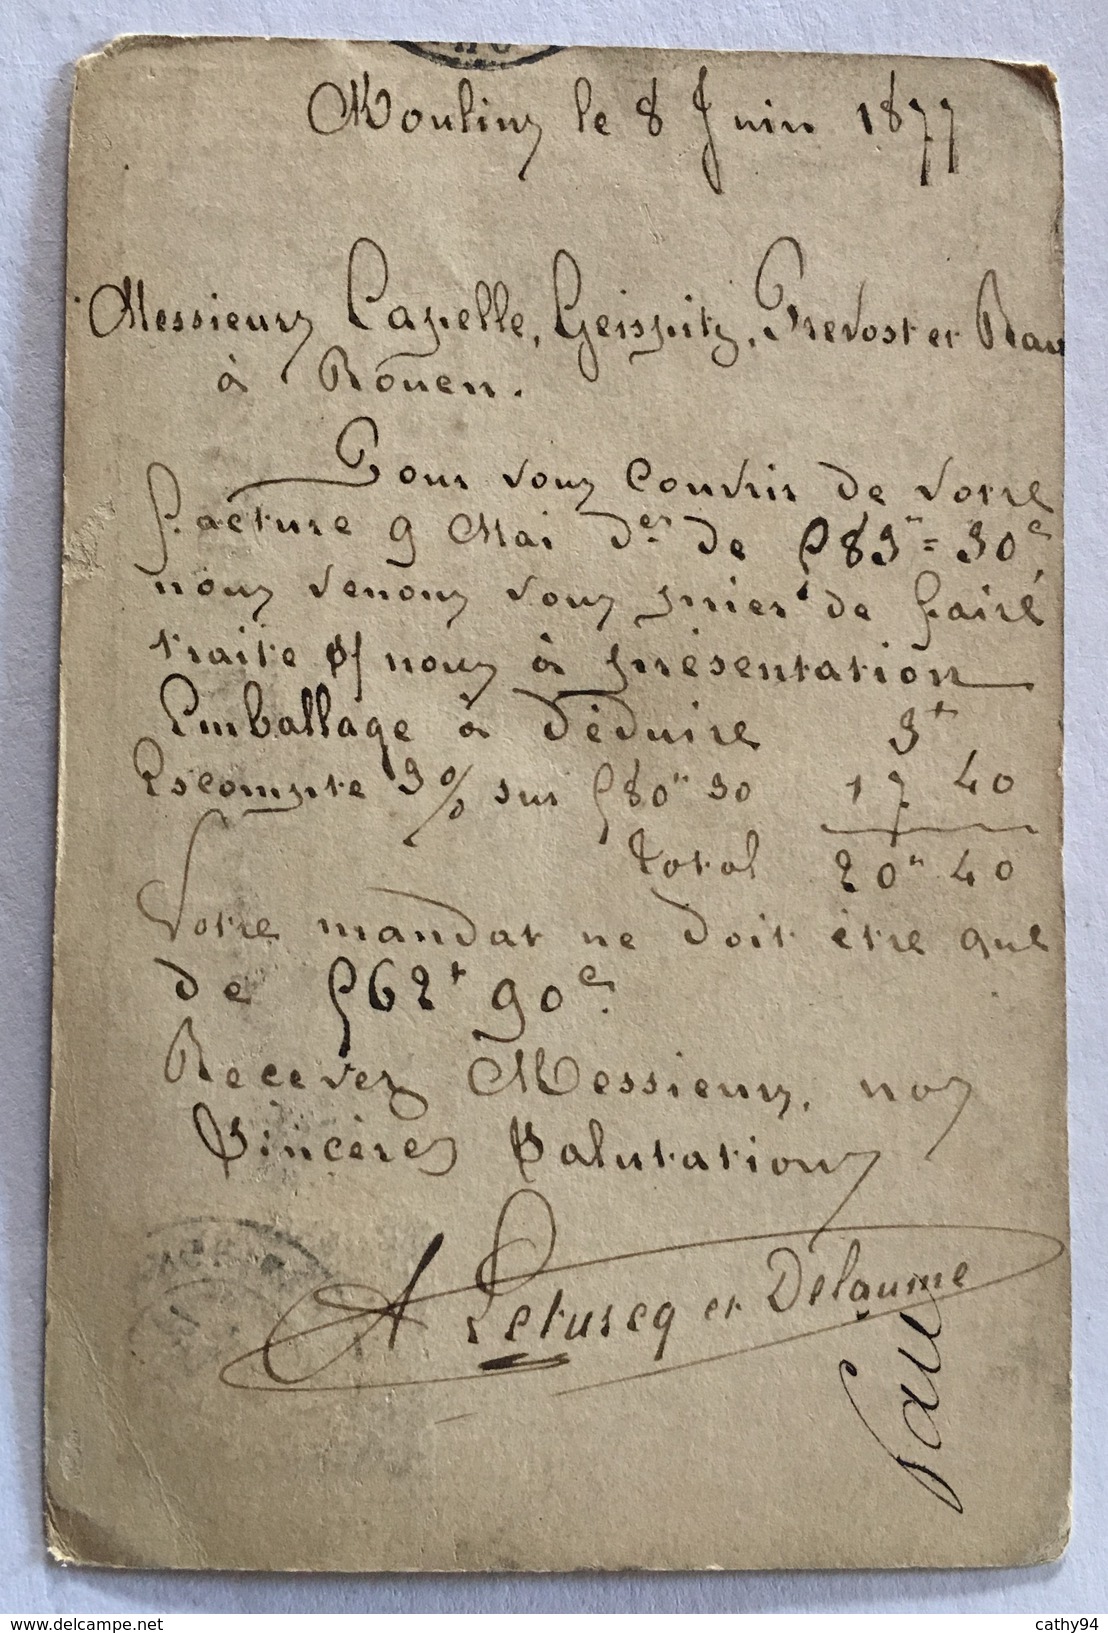 Moulins le 8 Juin 1877
Messieurs Capelle, Geispitz, Prevost et Rau
à Rouen.
Pour vous couvrir de votre
facture 9 Mai der de 583" = 30c
nous venons vous prier de faire
traite s/ nous à présentation
Emballage à déduire 3f
Escompte 3% sur 580" 30 17 40
Total 20" 40
Votre mandat ne doit être que
de 562f 90c.
Recevez Messieurs, nos
Sincères Salutations
A Leturcq et Delaume
cathy94